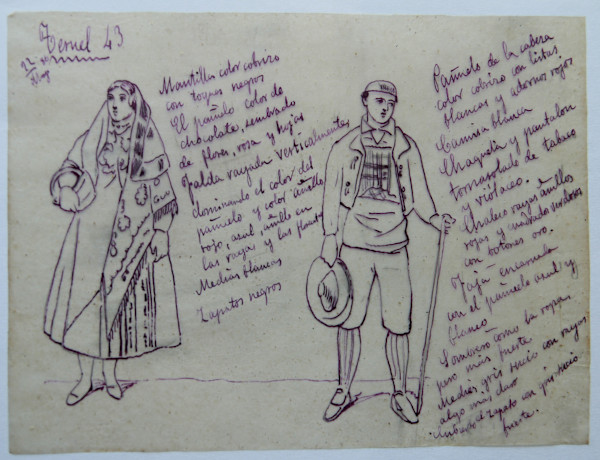 Teruel 43
Mantilla color cobrizo
con toques negros
El pañuelo color de
chocolate, sembrado
de flores, rosa y hojas
falda rayada verticalmente,
dominando el color del
pañuelo y color anillo
rojo, azul, anillo en
las rayas y las
Medias blancas
Zapatos negros
Pañuelo de la cabeza
color cobrizo con listas
blancas y adornos rojos
Camisa blanca
Chaquetilla y pantalon
tornasolado de tabaco
y violaceo.
Chaleco rayas anillos
rojas y cuadrado
con botones oro.
Faja encarnada
con el pañuelo azul y
blanco
Sombrero como la ropa
pero mas fuerte
Medias gris sucio con rayas
algo mas claro
zapato con gris sucio
fuerte.